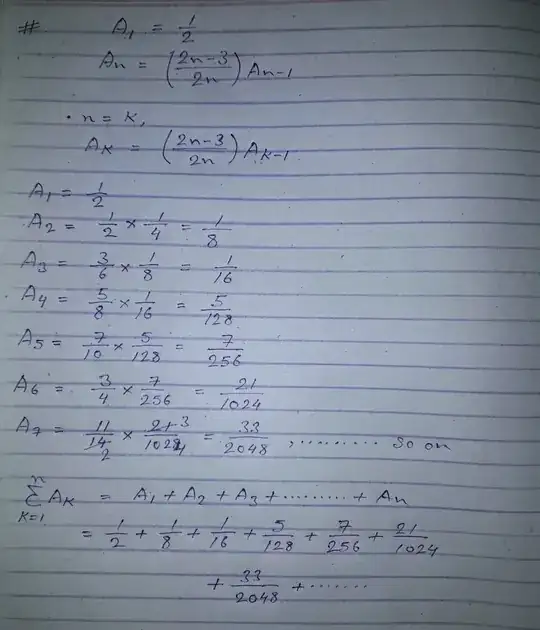 # A₁ = 1/2
Aₙ = ((2n-3)/2n) Aₙ₋₁
• n = K,
A_K = ((2n-3)/2n) A_K-1
A₁ = 1/2
A₂ = 1/2 × 1/4 = 1/8
A₃ = 3/6 × 1/8 = 1/16
A₄ = 5/8 × 1/16 = 5/128
A₅ = 7/10 × 5/128 = 7/256
A₆ = 3/4 × 7/256 = 21/1024
A₇ = 11/14 2 × 21 3/1024 4 = 33/2048 , ......... so on
n Σ K=1 A_K = A₁ + A₂ + A₃ + ......... + Aₙ
= 1/2 + 1/8 + 1/16 + 5/128 + 7/256 + 21/1024
+ 33/2048 + .......